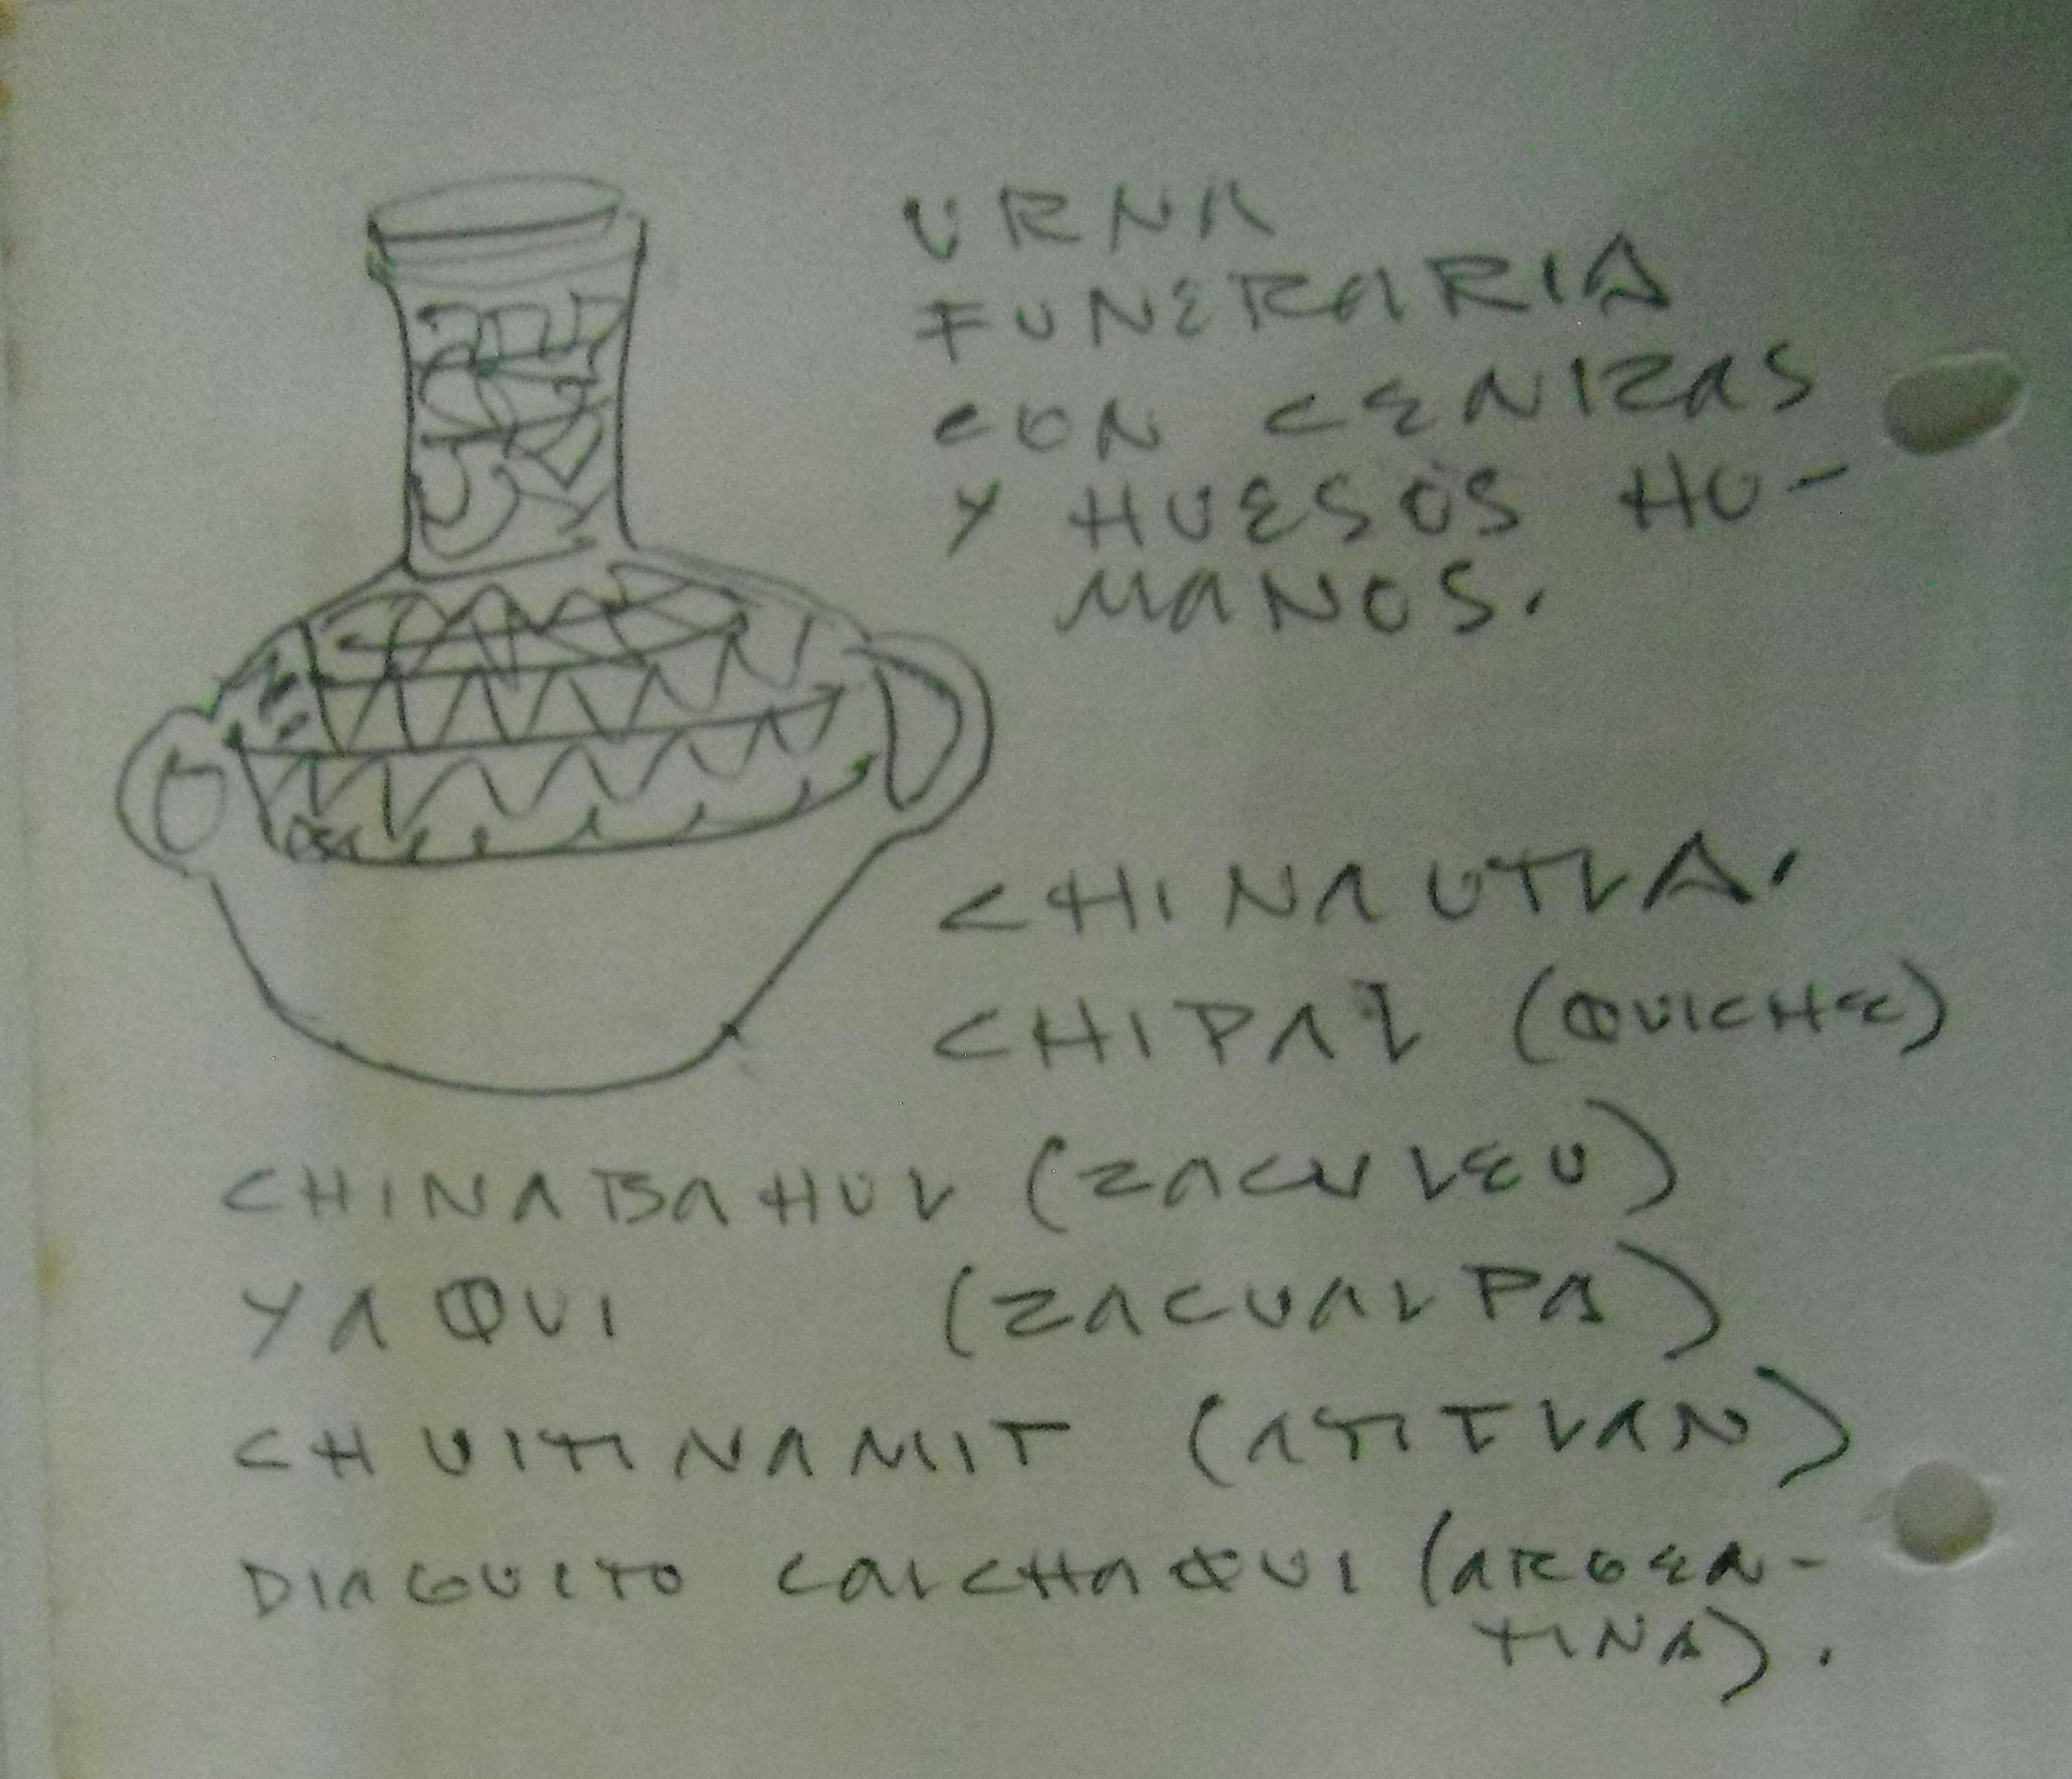 URNA
FUNERARIA
CON CENIZAS
Y HUESOS HU-
MANOS.
CHINAUTLA.
CHIPAL (QUICHE)
CHINABAHUL (ZACULEU)
YAQUI (ZACUALPA)
CHUITINAMIT (ATITLAN)
DIAGUITO CALCHAQUI (ARGEN-
TINA).